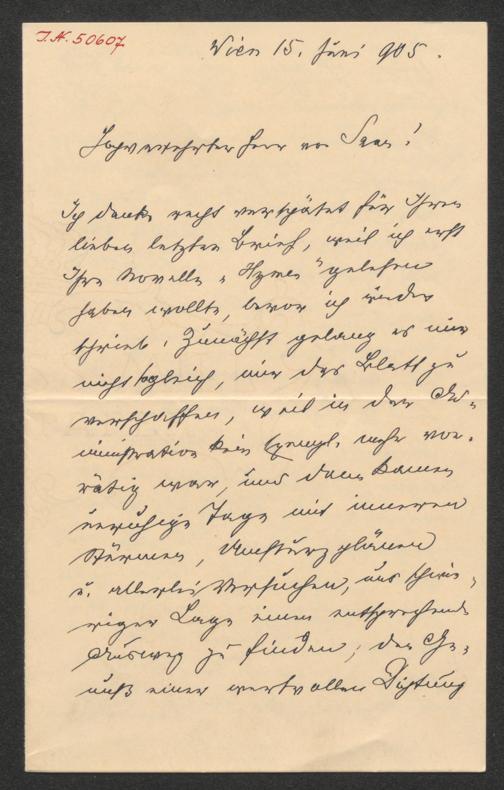 I.N. 50607
Wien 15. Juni 905.
Hochverehrter Herr von Saar!
Ich danke recht verspätet für Ihren
lieben letzten Brief, weil ich erst
Ihre Novelle „Hymen" gelesen
haben wollte, bevor ich wieder
schrieb. Zunächst gelang es mir
nicht sogleich, mir das Blatt zu
verschaffen, weil in der Ad-
ministration kein Exempl. mehr vor-
rätig war, und dann kamen
unruhige Tage mit inneren
Stürmen, Umsturzplänen
u. allerlei Versuchen, aus schwie-
riger Lage einen entsprechenden
Ausweg zu finden; der Ge-
nuß einer wertvollen Dichtung